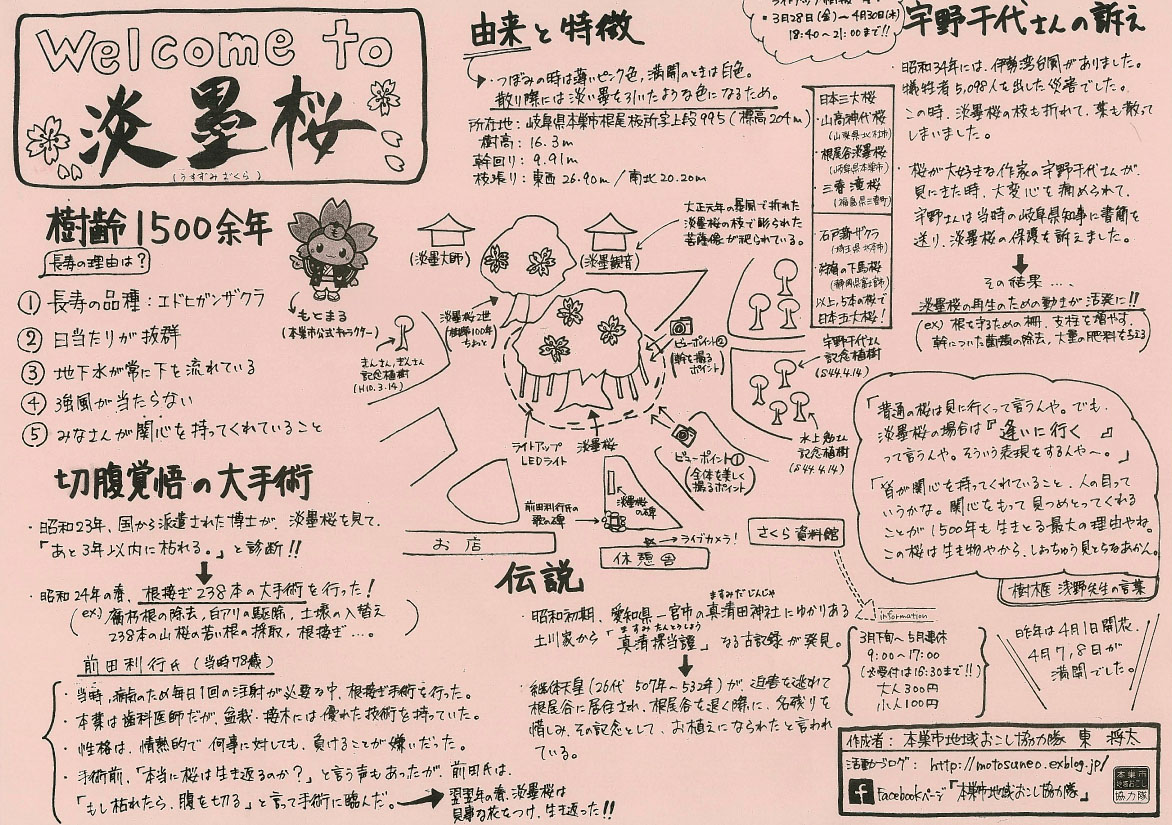 Welcome to
淡墨桜
(うすずみざくら)
樹齢1500余年
長寿の理由は?
① 長寿の品種:エドヒガンザクラ
② 日当たりが抜群
③ 地下水が常に下を流れている
④ 強風が当たらない
⑤ みなさんが関心を持ってくれていること
もとまる
(本巣市公式キャラクター)
切腹覚悟の大手術
・昭和23年、国から派遣された博士が、淡墨桜を見て、
「あと3年以内に枯れる。」と診断!!
・昭和24年の春、根接ぎ238本の大手術を行った!
(ex) 腐朽根の除去、白アリの駆除、土壌の入替え
238本の山桜の若い根の採取、根接ぎ…。)
前田利行氏(当時78歳)
・当時、病点のため毎日1回の注射が必要な中、根接ぎ手術を行った。
・本業は歯科医師だが、盆栽・接木には優れた技術を持っていた。
・性格は、情熱的で何事に対しても、負けることが嫌いだった。
・手術前、「本当に桜は生き返るのか?」と言う声もあったが、前田氏は、
「もし枯れたら、腹を切る」と言って手術に臨んだ。
翌翌年の春、淡墨桜は
見事な花をつけ、生き返った!!
由来と特徴
・つぼみの時は薄いピンク色、満開のときは白色。
散り際には淡い墨を引いたような色になるため。
所在地:岐阜県本巣市根尾板所字上段995(標高204m)
樹高:16.3m
幹回り:9.91m
枝張り:東西26.90m/南北20.20m
・3月28日(金)~4月30日(水)
18:40~21:00まで!!
日本三大桜
・山高神代桜
(山梨県北杜市)
・根尾谷淡墨桜
(岐阜県本巣市)
・三春滝桜
(福島県三春町)
・石戸蒲ザクラ
(埼玉県北本市)
・狩宿の下馬桜
(静岡県富士宮市)
以上、5本の桜で
日本五大桜!
大正元年の暴風で折れた
淡墨桜の枝で彫られた
菩薩像が祀られている。
(淡墨大師)
(淡墨観音)
淡墨桜2世
(樹齢100年
ちょっと)
きんさん、ぎんさん
記念植樹
(H10.3.14)
ビューポイント②
(幹を撮る
ポイント)
宇野千代さん
記念植樹
(S44.4.14)
水上勉さん
記念植樹
(S44.4.14)
ライトアップ
LEDライト
淡墨桜
ビューポイント①
(全体を美しく
撮るポイント)
前田利行氏の
歌の碑
淡墨桜
の碑
ライブカメラ!
お店
休憩舎
さくら資料館
伝説
・昭和初期、愛知県一宮市の真清田神社にゆかりある
ますみだじんじゃ
土川家から「真清探当證」なる古記録が発見。
ますみたんとうしょう
・継体天皇(26代 507年~532年)が、迫害を逃れて
根尾谷に居住され、根尾谷を退く際に、名残りを
惜しみ、その記念として、お植えになられたと言われ
ている。
宇野千代さんの訴え
・昭和34年には、伊勢湾台風がありました。
犠牲者5,098人を出した災害でした。
この時、淡墨桜の枝も折れて、葉も散って
しまいました。
・桜が大好きな作家の宇野千代さんが、
見にきた時、大変心を痛められて、
宇野さんは当時の岐阜県知事に書簡を
送り、淡墨桜の保護を訴えました。
その結果....
淡墨桜の再生のための動きが活発に!!
(ex) 根を守るための柵、支柱を増やす、
幹についた菌類の除去、大量の肥料を与える)
「普通の桜は見に行くって言うんや。でも、
淡墨桜の場合は『逢いに行く』
って言うんや。そういう表現をするんや~。」
「皆が関心を持ってくれていること、人の目って
いうかな。関心をもって見つめとってくれる
ことが1500年も生きとる最大の理由やね。
この桜は生き物やから、しょっちゅう見とらなあかん。」
樹木医 浅野先生の言葉
information
3月下旬~5月連休
9:00~17:00
(※受付は16:30まで!!)
大人300円
小人100円
昨年は4月1日開花。
4月7,8日が
満開でした。
作成者:本巣市地域おこし協力隊 東 将太
活動ブログ:http://motosuneo.exblog.jp/
Facebookページ「本巣市地域おこし協力隊」
本巣市
地域おこし
協力隊